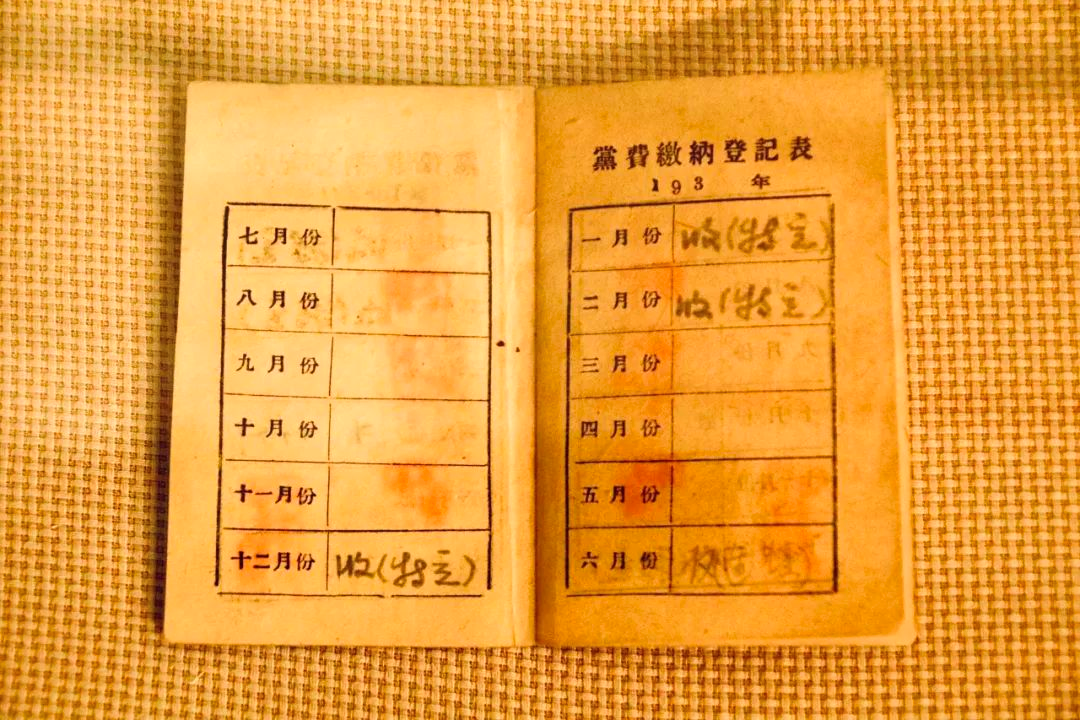 七月份
八月份
九月份
十月份
十一月份
十二月份 收(特定)
黨費繳納登記表
193 年
一月份 收(特定)
二月份 收(特定)
三月份
四月份
五月份
六月份